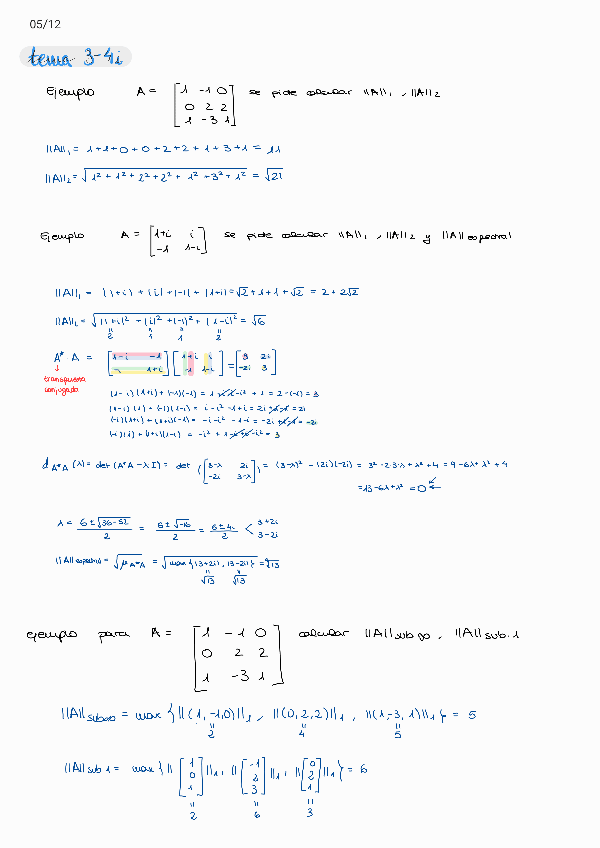 05/12
tema 3-4i
Ejemplo A = [1 -1 0 se pide calcular ||A||₁, ||A||₂
0 2 2
1 -3 1]
||A||₁ = 1+1+0+0+2+2+1+3+1 = 11
||A||₂ = √1²+1²+2²+2²+1²+3²+1² = √21
Ejemplo A = [1+i i se pide calcular ||A||₁, ||A||₂ y ||A|| espectral
-1 1-i]
||A||₁ = |1+i| + |i| + |-1| + |1+i| = √2+1+1+√2 = 2+2√2
||A||₂ = √|1+i|² + |i|² + |-1|² + |1-i|² = √6
2 1 1 2
A* A = [1-i -1 [1+i i = [3 2i
-i 1+i] -1 1-i] -2i 3]
↓
transpuesta
conjugada
(1-i)(1+i)+(-1)(-1) = 1+i-i-i²+1 = 2-(-1) = 3
(1-i)(i)+(-1)(1-i) = i-i²-1+i = 2i+1-1 = 2i
(-i)(1+i)+(1+i)(-1) = -i-i²-1-i = -2i+1-1 = -2i
(-i)(i)+(1+i)(1-i) = -i²+1-i+i-i² = 3
d A*A (λ) = det (A*A - λI) = det ([3-λ 2i = (3-λ)² - (2i)(-2i) = 3²-2·3·λ+λ²+4 = 9-6λ+λ²+4
-2i 3-λ])
= 13-6λ+λ² = 0 ←
λ = 6±√36-52 / 2 = 6±√-16 / 2 = 6±4i / 2 < 3+2i
3-2i
||A|| espectral = √ρ A*A = √max{|3+2i|, |3-2i|} = ∜13
√13 √13
ejemplo para A = [1 -1 0 calcular ||A|| sub ∞, ||A|| sub 1
0 2 2
1 -3 1]
||A|| sub ∞ = max {||(1,-1,0)||₁, ||(0,2,2)||₁, ||(1-3,1)||₁} = 5
2 4 5
||A|| sub 1 = max {|| [1 0 1] ||₁, || [-1 2 3] ||₁, || [0 2 1] ||₁} = 6
2 6 3